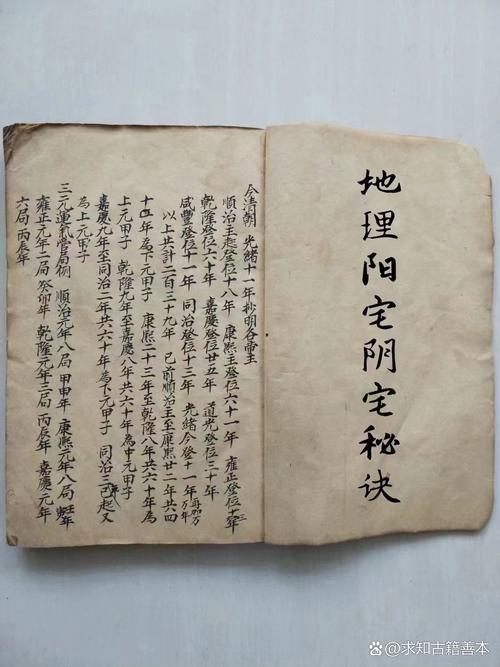 地理阳宅阴宅秘诀
今清朝 光緒十一年抄明各帝主
順治主起登位十八年 康熙主登位六十一年 雍正登位十三年
乾隆登位六十年 嘉慶登位廿五年 道光登位三十年
咸豐登位十一年 同治登位十三年 光緒今登十一年 再加万万年
以上共計二百三十九年 已前順治主至康熙廿二年共四
十年為下元甲子 康熙二十三年至乾隆八年共六十年為
上元甲子 乾隆九年至嘉慶八年共六十年為中元甲子
嘉慶九年至同治二年共六十年為下元甲子 同治三年起又
為上元甲子
三元運氣當局例 順治元年八局 甲申年 康熙元年八局 年
雍正元年二局 癸卯年 乾隆元年三局 丙辰年 嘉慶元年
六局 丙辰年
头条 @求知古籍善本